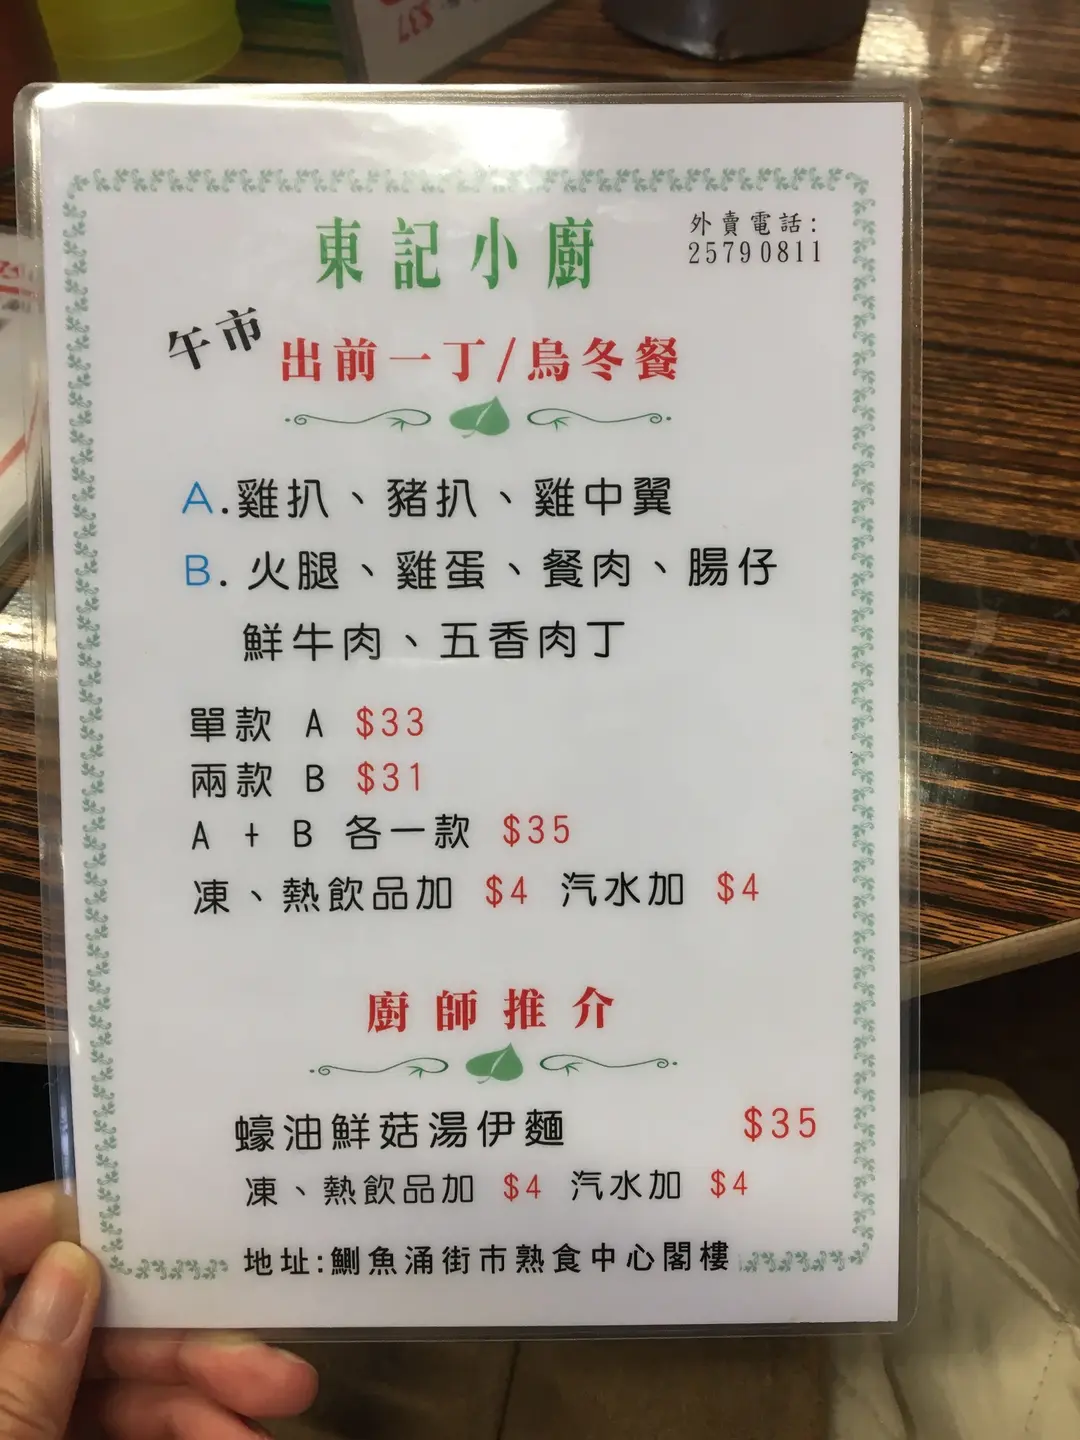 $37
東記小廚
外賣電話:
25790811
午市
出前一丁/烏冬餐
A.雞扒、豬扒、雞中翼
B.火腿、雞蛋、餐肉、腸仔
鮮牛肉、五香肉丁
單款 A $33
兩款 B $31
A + B 各一款 $35
凍、熱飲品加 $4 汽水加 $4
廚師推介
蠔油鮮菇湯伊麵 $35
凍、熱飲品加 $4 汽水加 $4
地址:鰂魚涌街市熟食中心閣樓